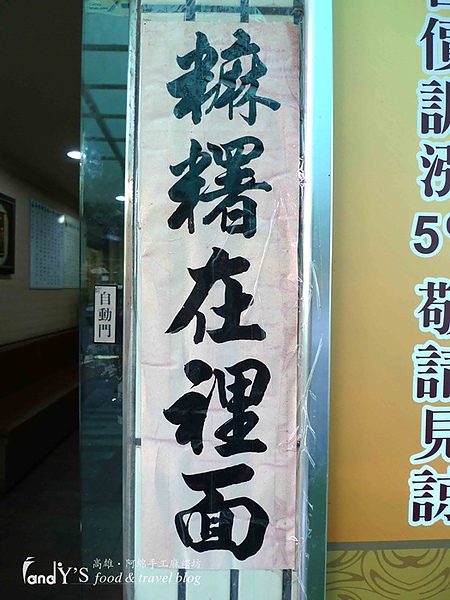 糎糬在裡面
自動門
價調漲5%
敬請見諒
FandY'S
高雄・阿綿手工麻糬坊
food & travel blog